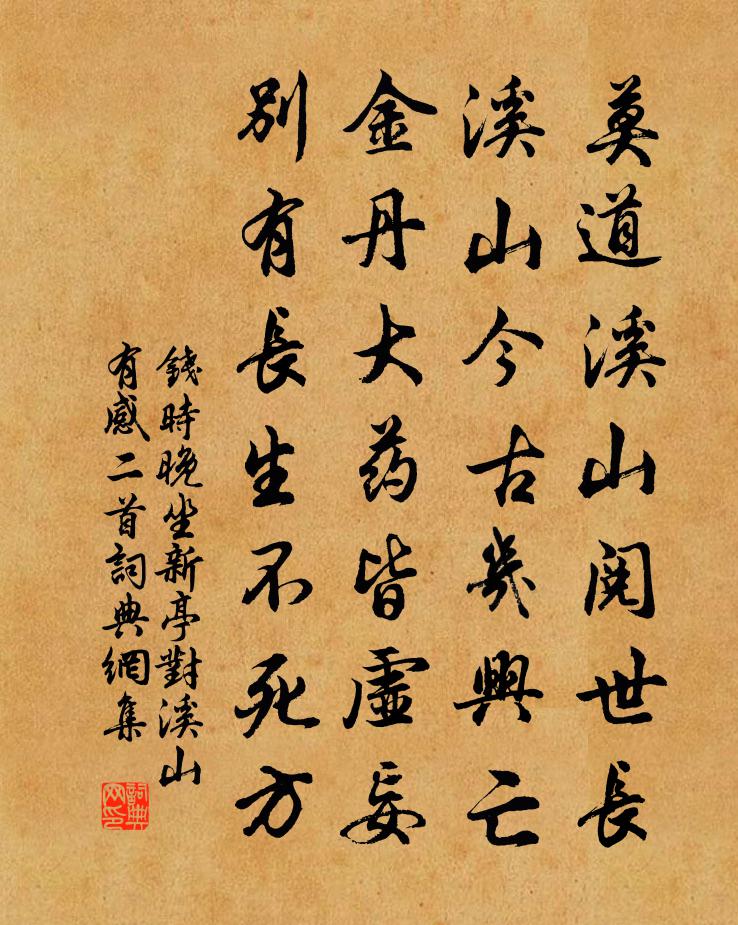 莫道溪山閱世長
溪山今古幾興亡
金丹大药皆虛妄
別有長生不死方
錢時晚坐新亭對溪山
有感二首詞典網集
詞典
网印